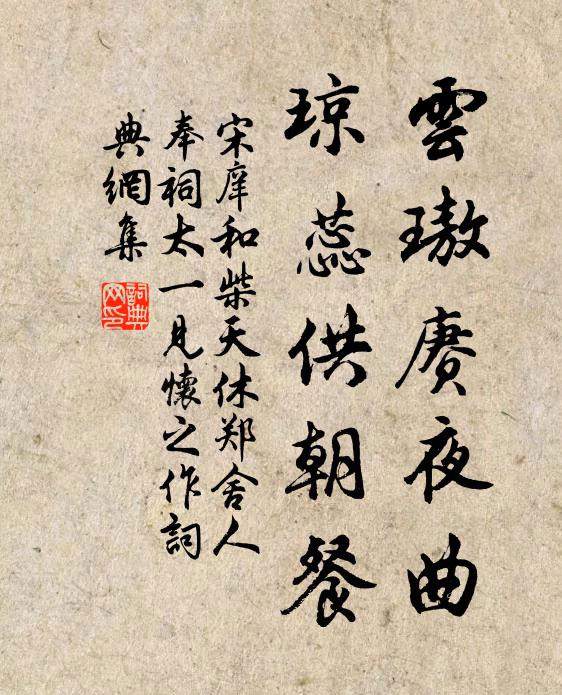 雲璈赓夜曲
琼蕊供朝餐
宋庠和柴天休郑舍人
奉祠太一見懷之作詞
典網集
詞典网印